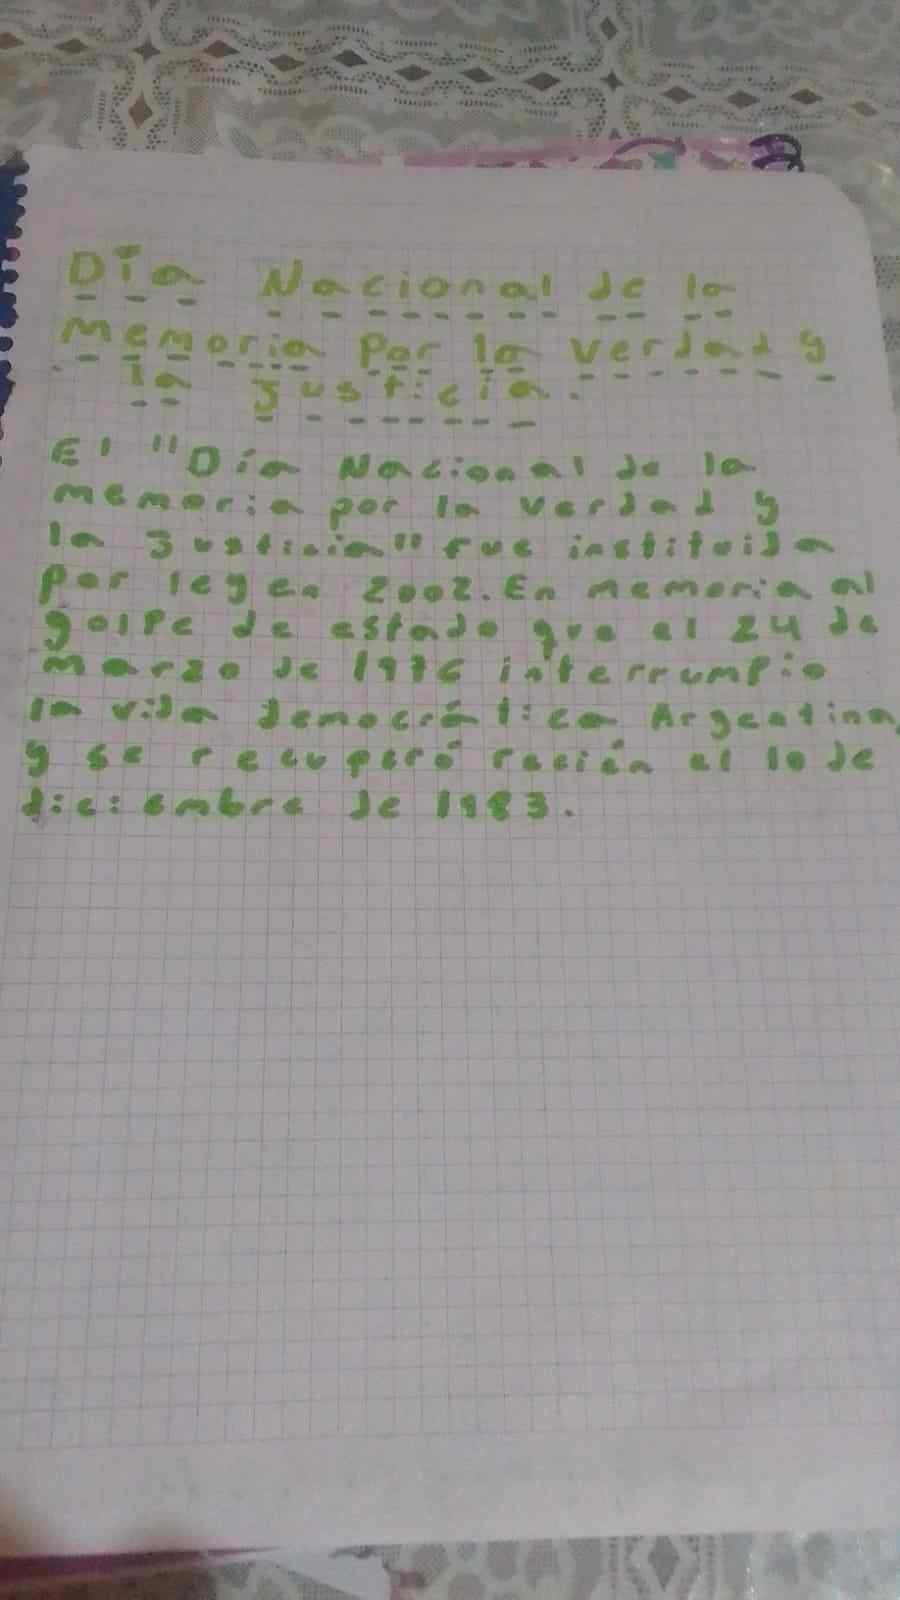 Día Nacional de la
Memoria Por la verdad y
la Justicia.
El "Día Nacional de la
memoria por la verdad y
la Justicia" fue instituida
por ley en 2002. En memoria al
golpe de estado que el 24 de
marzo de 1976 interrumpio
la vida democrática Argentina,
y se recuperó recién el 10 de
diciembre de 1983.